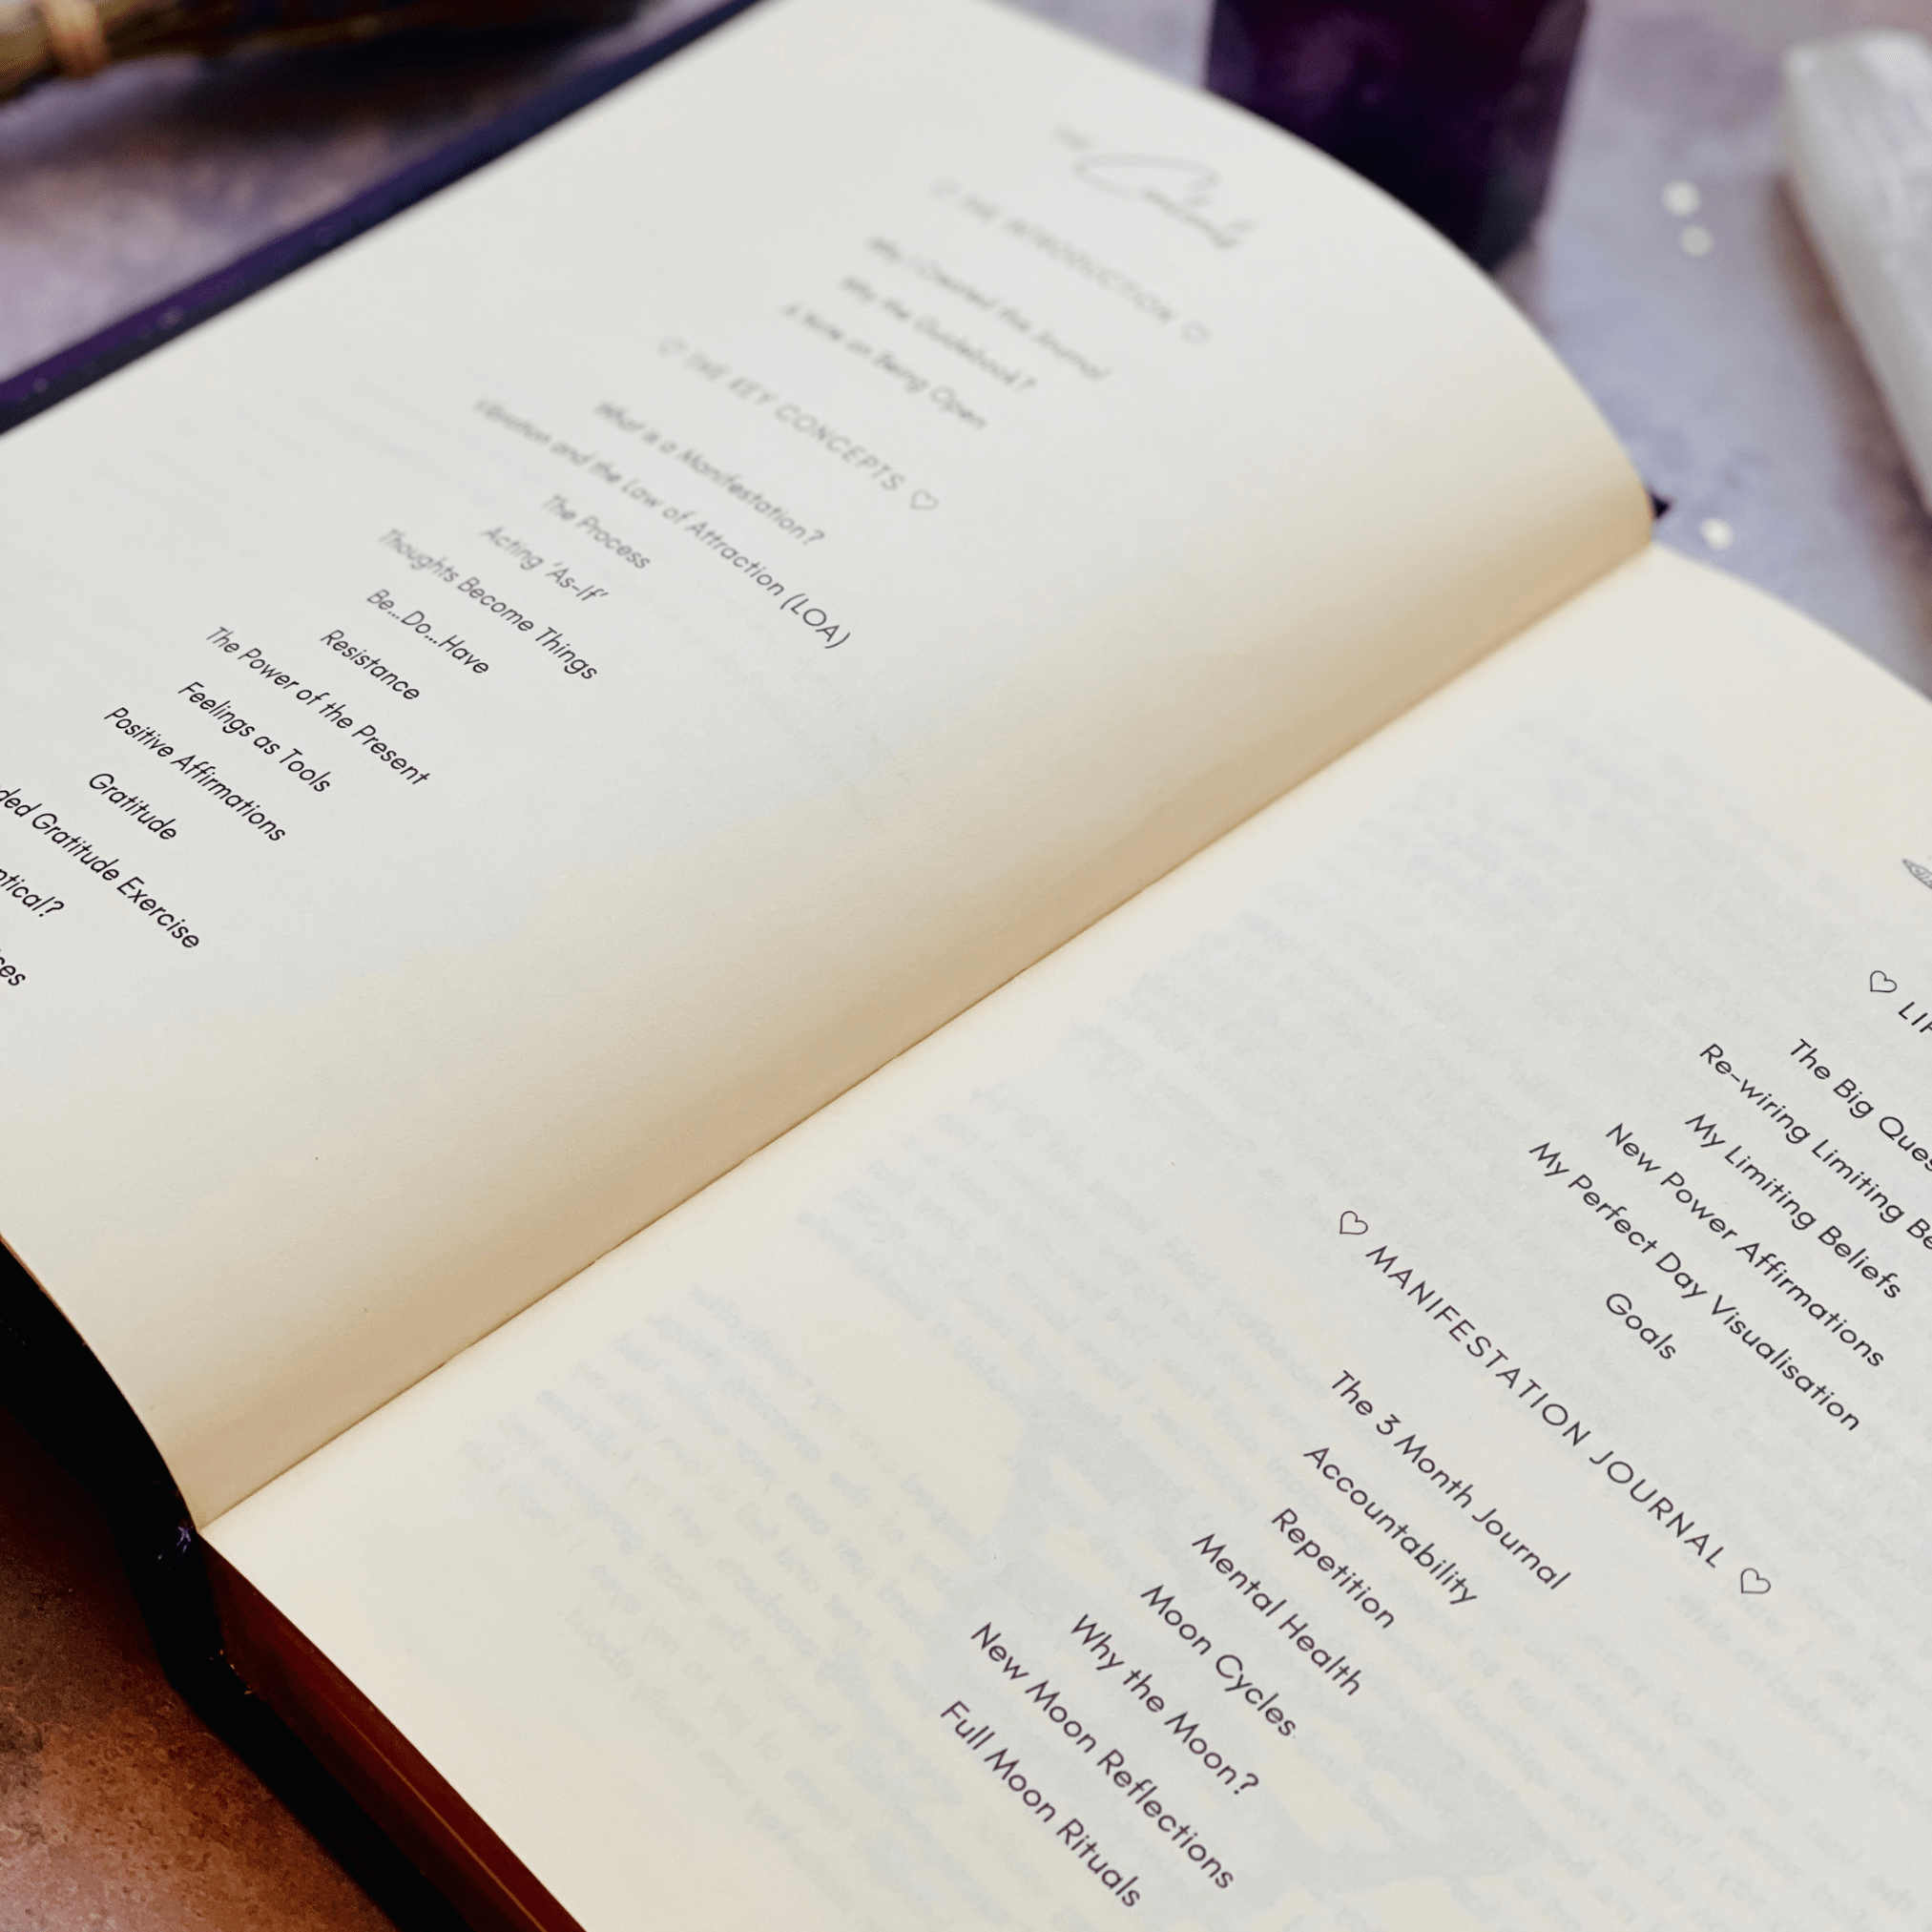 THE
Contents
THE INTRODUCTION
Why I Created this Journal
Why the Guidebook?
A Note on Being Open
THE KEY CONCEPTS
What is a Manifestation?
Vibration and the Law of Attraction (LOA)
The Process
Acting 'As-If'
Thoughts Become Things
Be...Do...Have
Resistance
The Power of the Present
Feelings as Tools
Positive Affirmations
Gratitude
Gratitude Exercise
The Big
Re-wiring Limiting
My Limiting Beliefs
New Power Affirmations
My Perfect Day Visualisation
Goals
MANIFESTATION JOURNAL
The 3 Month Journal
Accountability
Repetition
Mental Health
Moon Cycles
Why the Moon?
New Moon Reflections
Full Moon Rituals